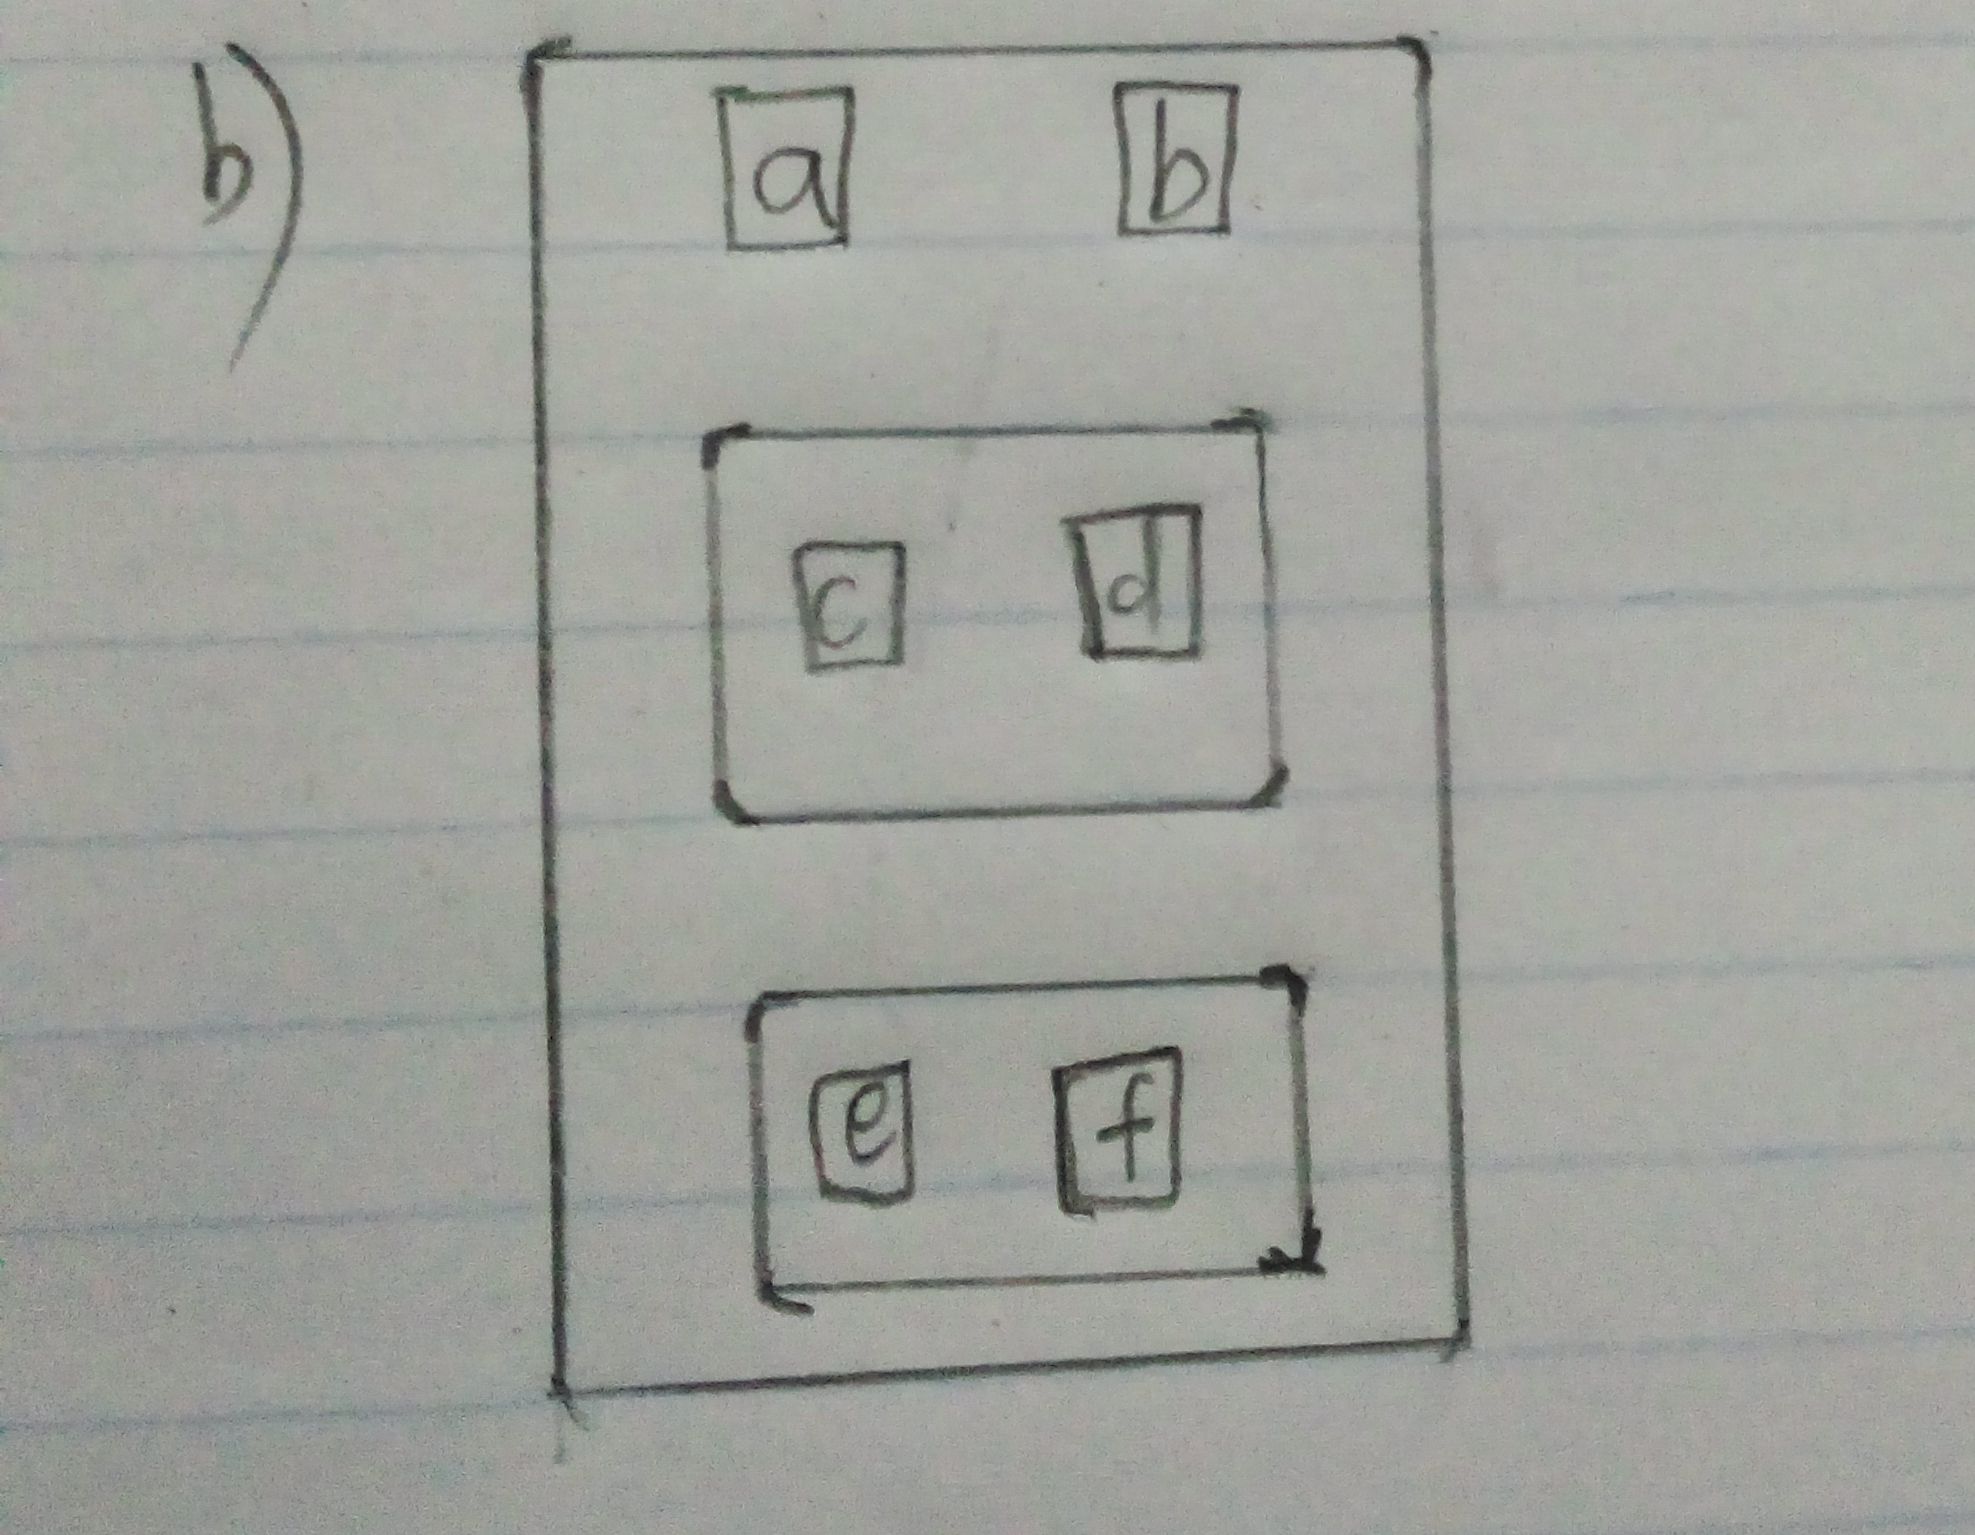 b)
a b
c d
e f